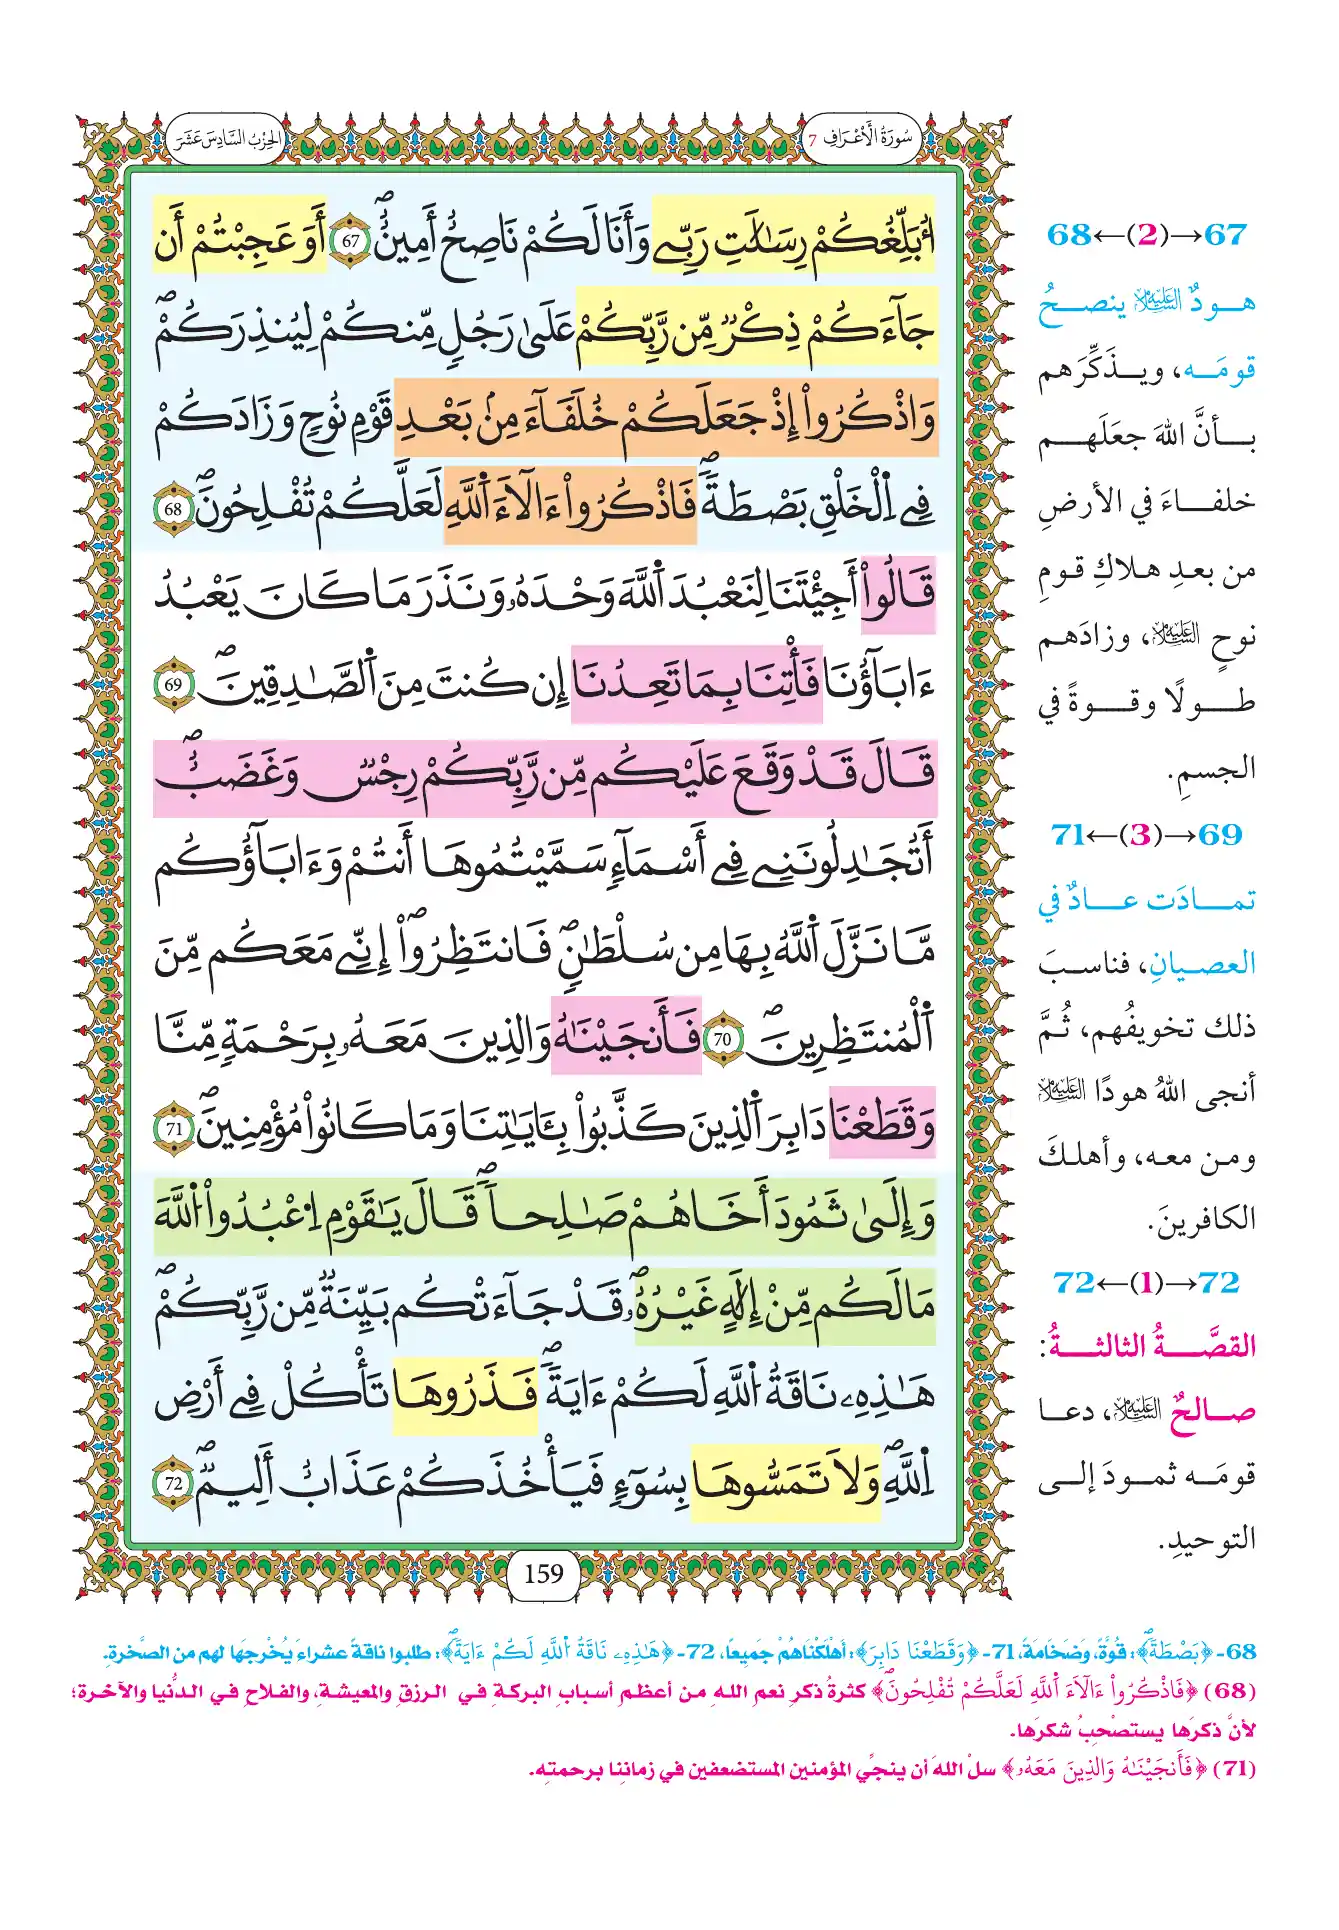 سُورَةُ الْأَعْرَافِ 7
الحِزْبُ السَّادِسَ عَشَرَ
أُبَلِّغُكُمْ رِسَٰلَٰتِ رَبِّے وَأَنَا لَكُمْ نَاصِحٌ أَمِينٌۖ 67 أَوَعَجِبْتُمْ أَن
جَآءَكُمْ ذِكْرٌ مِّن رَّبِّكُمْ عَلَىٰ رَجُلٍ مِّنكُمْ لِيُنذِرَكُمْۖ
وَاذْكُرُواْ إِذْ جَعَلَكُمْ خُلَفَآءَ مِنۢ بَعْدِ قَوْمِ نُوحٍ وَزَادَكُمْ
فِے اِلْخَلْقِ بَصْطَةًۖ فَاذْكُرُواْ ءَالَآءَ اَللَّهِ لَعَلَّكُمْ تُفْلِحُونَۖ 68
قَالُواْ أَجِئْتَنَا لِنَعْبُدَ اَللَّهَ وَحْدَهُۥ وَنَذَرَ مَا كَانَ يَعْبُدُ
ءَابَآؤُنَا فَأْتِنَا بِمَا تَعِدُنَا إِن كُنتَ مِنَ اَلصَّٰدِقِينَۖ 69
قَالَ قَدْ وَقَعَ عَلَيْكُم مِّن رَّبِّكُمْ رِجْسٌ وَغَضَبٌۖ
أَتُجَٰدِلُونَنِے فِے أَسْمَآءٍ سَمَّيْتُمُوهَا أَنتُمْ وَءَابَآؤُكُم
مَّا نَزَّلَ اَللَّهُ بِهَا مِن سُلْطَٰنٍۖ فَانتَظِرُوٓاْۖ إِنِّے مَعَكُم مِّنَ
اَلْمُنتَظِرِينَۖ 70 فَأَنجَيْنَٰهُ وَالذِينَ مَعَهُۥ بِرَحْمَةٍ مِّنَّا
وَقَطَعْنَا دَابِرَ اَلذِينَ كَذَّبُواْ بِـَٔايَٰتِنَا وَمَا كَانُواْ مُؤْمِنِينَۖ 71
وَإِلَىٰ ثَمُودَ أَخَاهُمْ صَٰلِحاًۖ قَالَ يَٰقَوْمِ اِ۟عْبُدُواْ اُللَّهَ
مَا لَكُم مِّنْ إِلَٰهٍ غَيْرُهُۥۖ قَدْ جَآءَتْكُم بَيِّنَةٌ مِّن رَّبِّكُمْۖ
هَٰذِهِۦ نَاقَةُ اُللَّهِ لَكُمْ ءَايَةًۖ فَذَرُوهَا تَأْكُلْ فِے أَرْضِ
اِللَّهِۖ وَلَا تَمَسُّوهَا بِسُوٓءٍ فَيَأْخُذَكُمْ عَذَابٌ أَلِيمٌۖ 72
159
67→(2)←68
هـودٌ عليه السلام ينصـحُ
قومَـه، ويـذَكِّرَهم
بـأنَّ اللهَ جعلَهـم
خلفـاءَ في الأرضِ
من بعدِ هلاكِ قومِ
نوحٍ عليه السلام، وزادَهم
طـولًا وقـوةً في
الجسمِ.
69→(3)←71
تمـادَت عـادٌ في
العصيانِ، فناسبَ
ذلك تخويفُهم، ثُمَّ
أنجى اللهُ هودًا عليه السلام
ومن معه، وأهلكَ
الكافرينَ.
72→(1)←72
القصَّـةُ الثالثـةُ:
صـالحٌ عليه السلام، دعـا
قومَـه ثمـودَ إلى
التوحيدِ.
68-﴿بَصْطَةًۖ﴾: قُوَّةً، وضَخَامَةً، 71-﴿وَقَطَعْنَا دَابِرَ﴾: أهْلَكْنَاهُمْ جَمِيعًا، 72-﴿هَٰذِهِۦ نَاقَةُ اُللَّهِ لَكُمْ ءَايَةًۖ﴾: طلبوا ناقةً عشراءَ يُخْرجهَا لهم من الصَّخرةِ.
(68) ﴿فَاذْكُرُواْ ءَالَآءَ اَللَّهِ لَعَلَّكُمْ تُفْلِحُونَۖ﴾ كثرةُ ذكرِ نعمِ اللهِ من أعظمِ أسبابِ البركةِ في الرزقِ والمعيشةِ، والفلاحِ في الدنُّيا والآخرة؛
لأنَّ ذكرَها يستصْحبُ شكرَها.
(71) ﴿فَأَنجَيْنَٰهُ وَالذِينَ مَعَهُۥ﴾ سلْ اللهَ أن ينجِّي المؤمنين المستضعفين في زماننا برحمتِه.